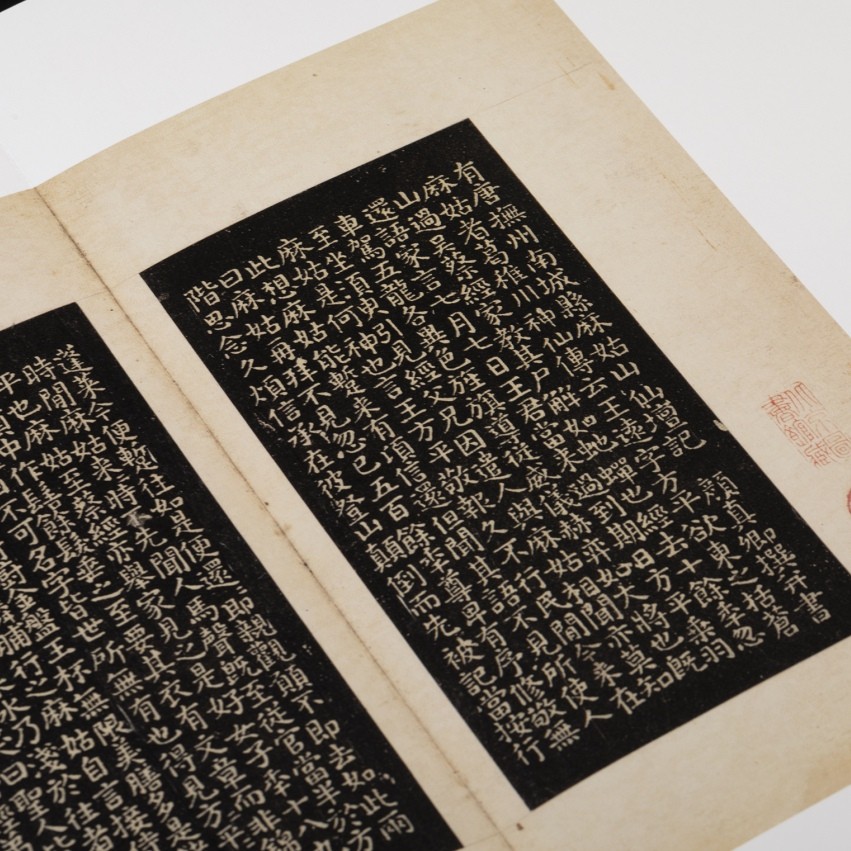 有唐撫州南城縣麻姑山仙壇記
顏真卿撰并書
麻姑者葛稚川神仙傳云王遠字方平欲東之括蒼
山過吳蔡經家教其尸解如虵蟬也經去十餘年忽
還語家言七月七日王君當來過到期日方平乘羽
車駕五龍各異色旌旗道從威儀赫弈如大將也既
至坐須臾引見經父兄因遣人與麻姑相聞亦莫知
麻姑是何神也言王方平敬報久不行民間今來在
此想麻姑能蹔來有頃信還但聞其語不見所使人
曰麻姑再拜不見忽已五百餘年尊卑有序修敬無
階思念久煩信承在彼登山顛倒而先被記當按行
蓬萊今便蹔往如是便還還即親觀願不即去如此兩
時間麻姑來時不先聞人馬聲既至從官當半於方
平也麻姑至蔡經亦舉家見之是好女子年十八九
作髻餘髮垂之至要其衣有文章而非錦
不可名字皆世所無有也得見方平
金盤玉杯無限美膳多是
脯行之麻姑自言接侍
水乃淺於往者
曰聖人